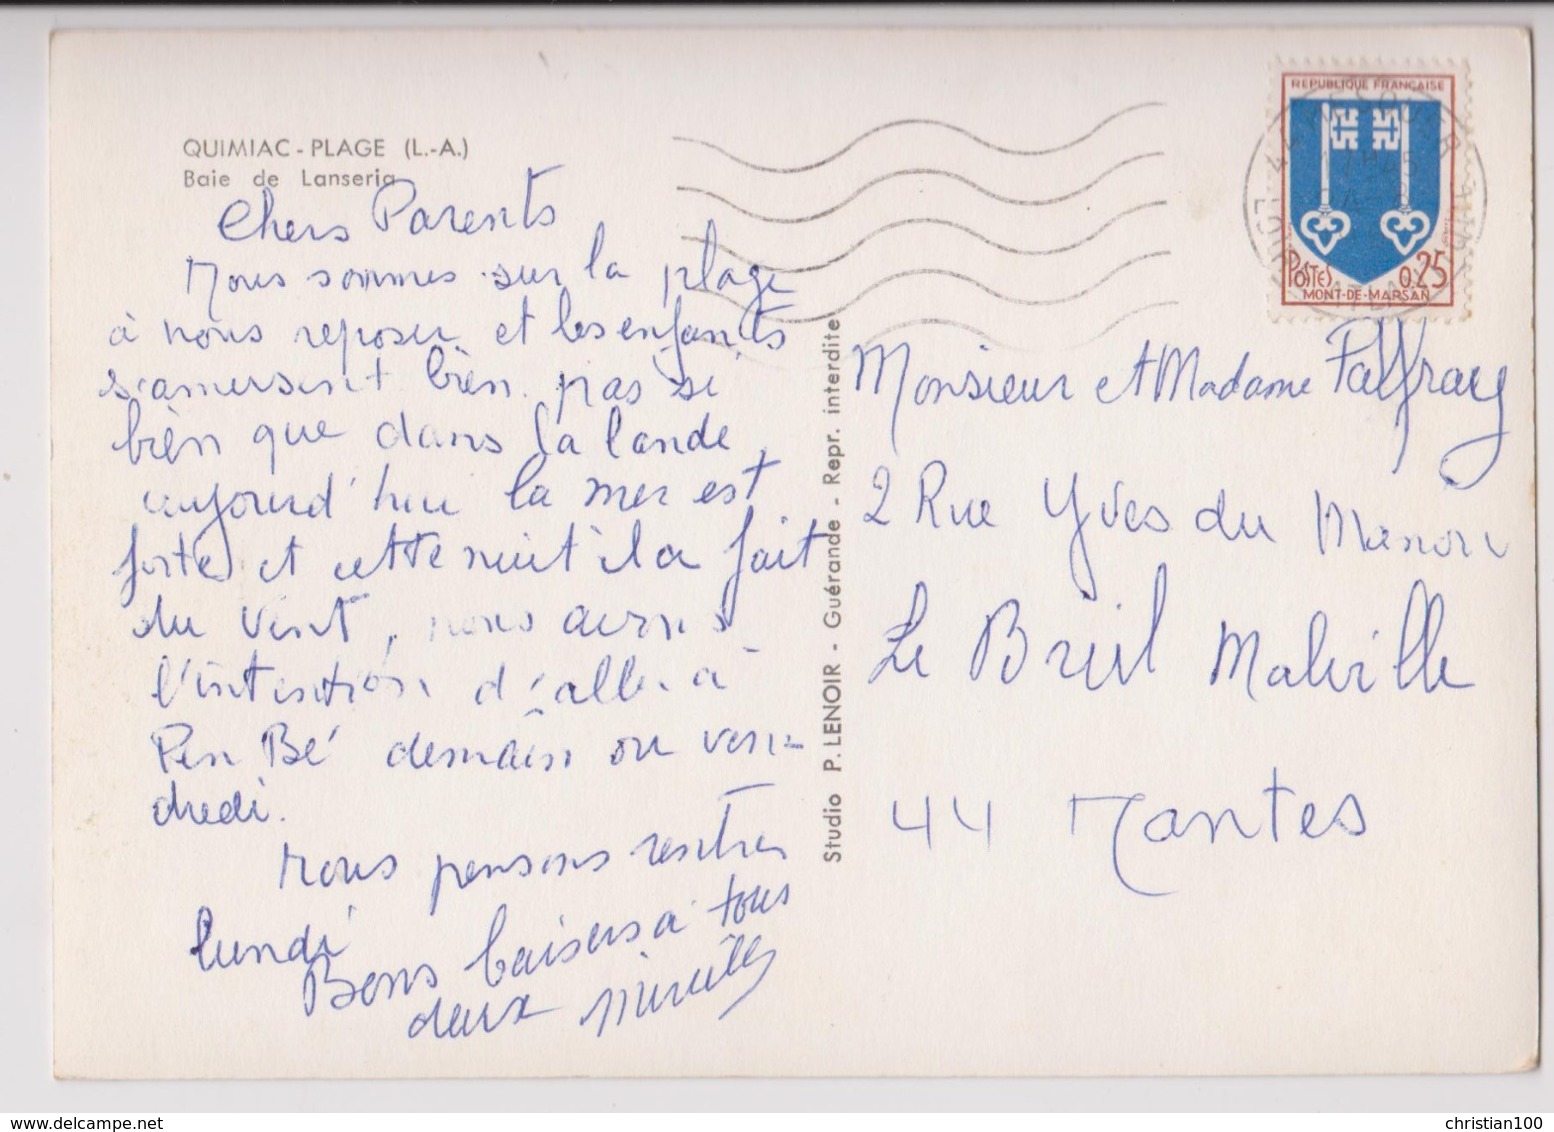 QUIMIAC - PLAGE (L.-A.)
Baie de Lanseria
Chers Parents
Nous sommes sur la plage
à nous reposer et les enfants
s'amusent bien pas si
bien que dans la lande,
aujourd'hui la mer est
forte et cette nuit il a fait
du vent, nous avons
l'intention d'aller à
Pen Bé demain ou ven-
dredi.
Nous pensons rentrer
lundi
Bons baisers à tous
deux Mireille
Studio P. LENOIR - Guérande - Repr. interdite
REPUBLIQUE FRANÇAISE
POSTES 0.25
MONT-DE-MARSAN
Monsieur et Madame Palfray
2 Rue Yves du Manoir
Le Breil Malville
44 Nantes
delcampe.net
christian100